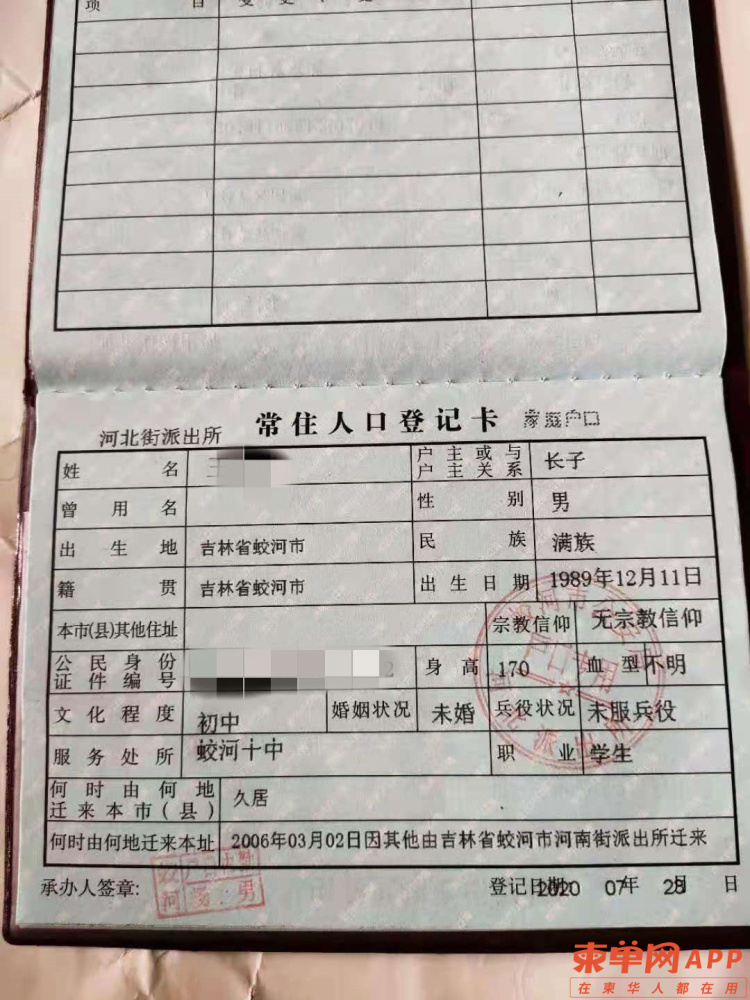 项 目 变 更 、 更
常住人口登记卡 家庭户口
河北街派出所
姓 名 王
户主或与户主关系 长子
曾用名
性 别 男
出生地 吉林省蛟河市
民 族 满族
籍 贯 吉林省蛟河市
出生日期 1989年12月11日
本市(县)其他住址
宗教信仰 无宗教信仰
公民身份证件编号 2
身高 170
血型 不明
文化程度 初中
婚姻状况 未婚
兵役状况 未服兵役
服务处所 蛟河十中
职 业 学生
何时由何地迁来本市(县) 久居
何时由何地迁来本址 2006年03月02日因其他由吉林省蛟河市河南街派出所迁来
承办人签章:
登记日期: 2020 07年 28月 日
户口专用
柬单网APP
在柬华人都在用